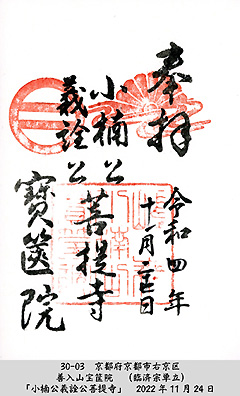 奉拝
令和四年
十一月 日
小楠公
義詮公
菩提寺
寶篋院
30-03 京都府京都市右京区
善入山宝筐院 (臨済宗単立)
「小楠公義詮公菩提寺」 2022年11月24日